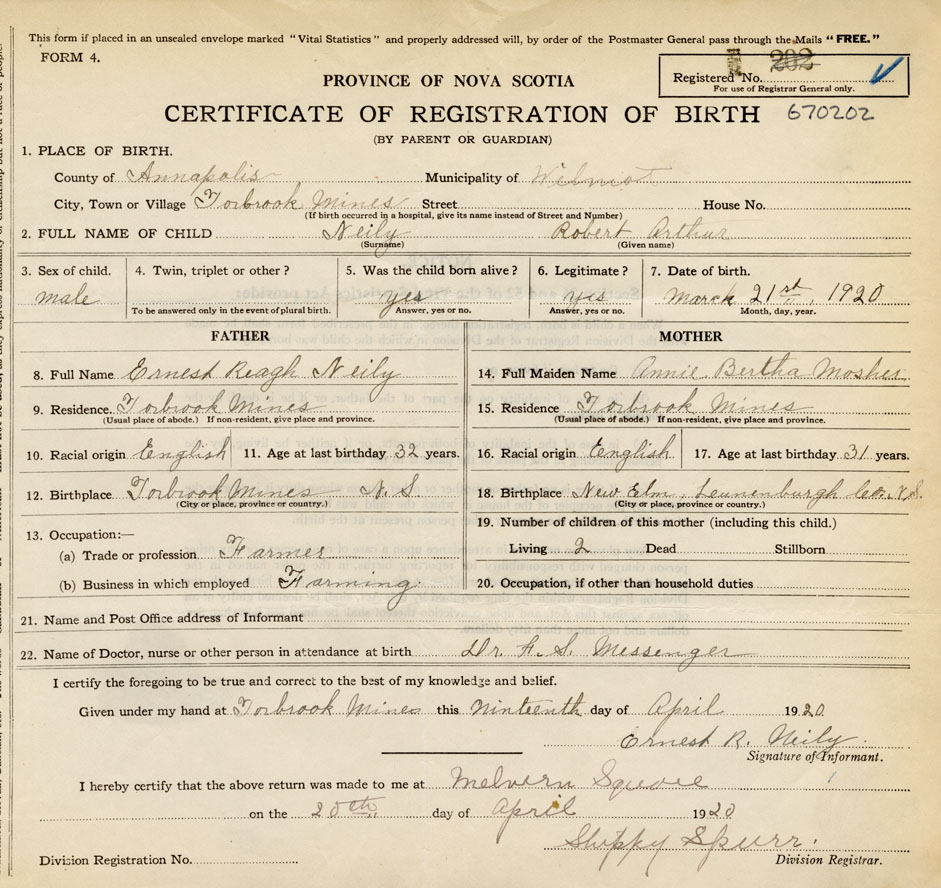 This form if placed in an unsealed envelope marked "Vital Statistics" and properly addressed will, by order of the Postmaster General pass through the Mails "FREE."
FORM 4.
202
Registered No.
For use of Registrar General only.
PROVINCE OF NOVA SCOTIA
CERTIFICATE OF REGISTRATION OF BIRTH 670202
(BY PARENT OR GUARDIAN)
1. PLACE OF BIRTH.
County of Annapolis Municipality of Wilmot
City, Town or Village Torbrook Mines Street House No.
(If birth occurred in a hospital, give its name instead of Street and Number)
2. FULL NAME OF CHILD Neily Robert Arthur
(Surname) (Given name)
3. Sex of child. 4. Twin, triplet or other? 5. Was the child born alive? 6. Legitimate? 7. Date of birth.
male yes yes March 21st, 1920
To be answered only in the event of plural birth. Answer, yes or no. Answer, yes or no. Month, day, year.
FATHER MOTHER
8. Full Name Ernest Reagh Neily 14. Full Maiden Name Annie Bertha Mosher
9. Residence. Torbrook Mines 15. Residence Torbrook Mines
(Usual place of abode.) If non-resident, give place and province. (Usual place of abode.) If non-resident, give place and province.
10. Racial origin English 11. Age at last birthday 32 years. 16. Racial origin English 17. Age at last birthday 31 years.
12. Birthplace Torbrook Mines N.S. 18. Birthplace New Elm, Leunenburgh Co. N.S.
(City or place, province or country.) (City or place, province or country.)
19. Number of children of this mother (including this child.)
13. Occupation:—
(a) Trade or profession Farmer Living 2 Dead Stillborn
(b) Business in which employed Farming. 20. Occupation, if other than household duties
21. Name and Post Office address of Informant
22. Name of Doctor, nurse or other person in attendance at birth Dr. H. S. Messenger
I certify the foregoing to be true and correct to the best of my knowledge and belief.
Given under my hand at Torbrook Mines this Ninteenth day of April 1920.
Ernest R. Neily
Signature of Informant.
I hereby certify that the above return was made to me at Melvern Square
on the 20th day of April 1920
Shippy Spurr.
Division Registrar.
Division Registration No.